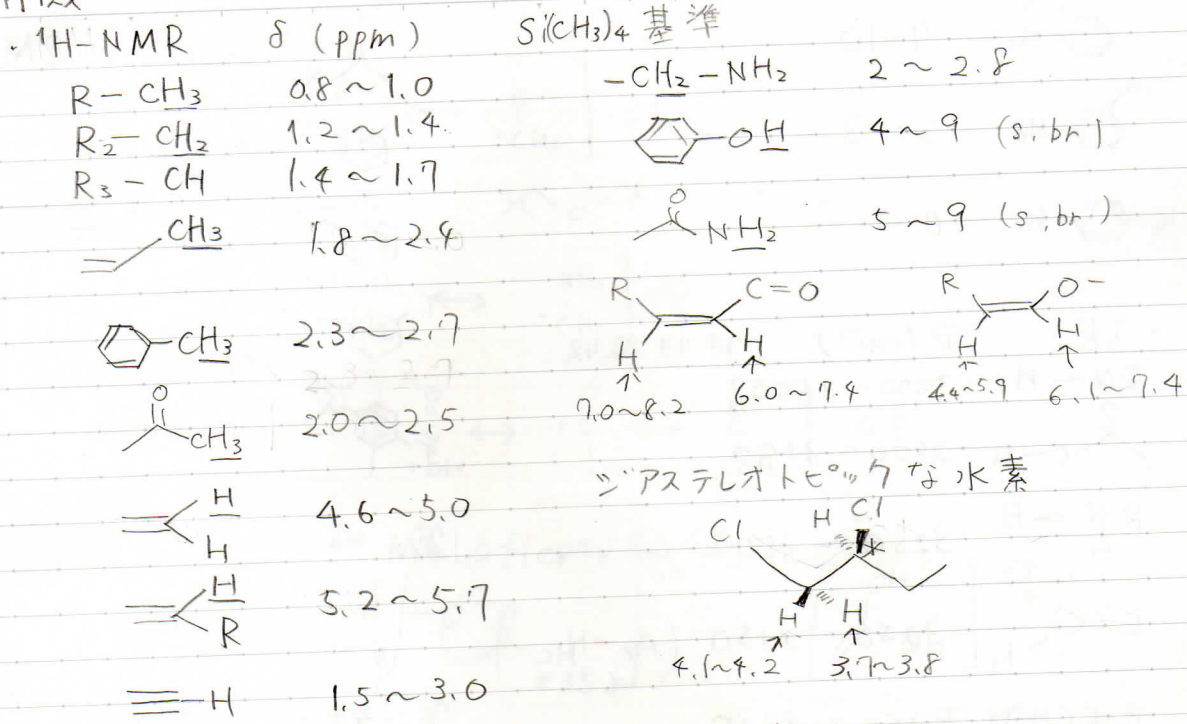 ・¹H-NMR δ (ppm) Si(CH₃)₄ 基準
R-CH₃ 0.8~1.0
R₂-CH₂ 1.2~1.4
R₃-CH 1.4~1.7
CH₃ 1.8~2.4
CH₃ 2.3~2.7
O
CH₃ 2.0~2.5
H
H 4.6~5.0
H
R 5.2~5.7
≡-H 1.5~3.0
-CH₂-NH₂ 2~2.8
OH 4~9 (s,br)
O
NH₂ 5~9 (s,br)
R C=O
H H
↑ ↑
7.0~8.2 6.0~7.4
R O-
H H
↑ ↑
4.4~5.9 6.1~7.4
ジアステレオトピックな水素
Cl H Cl
*
H H
4.1~4.2 3.7~3.8